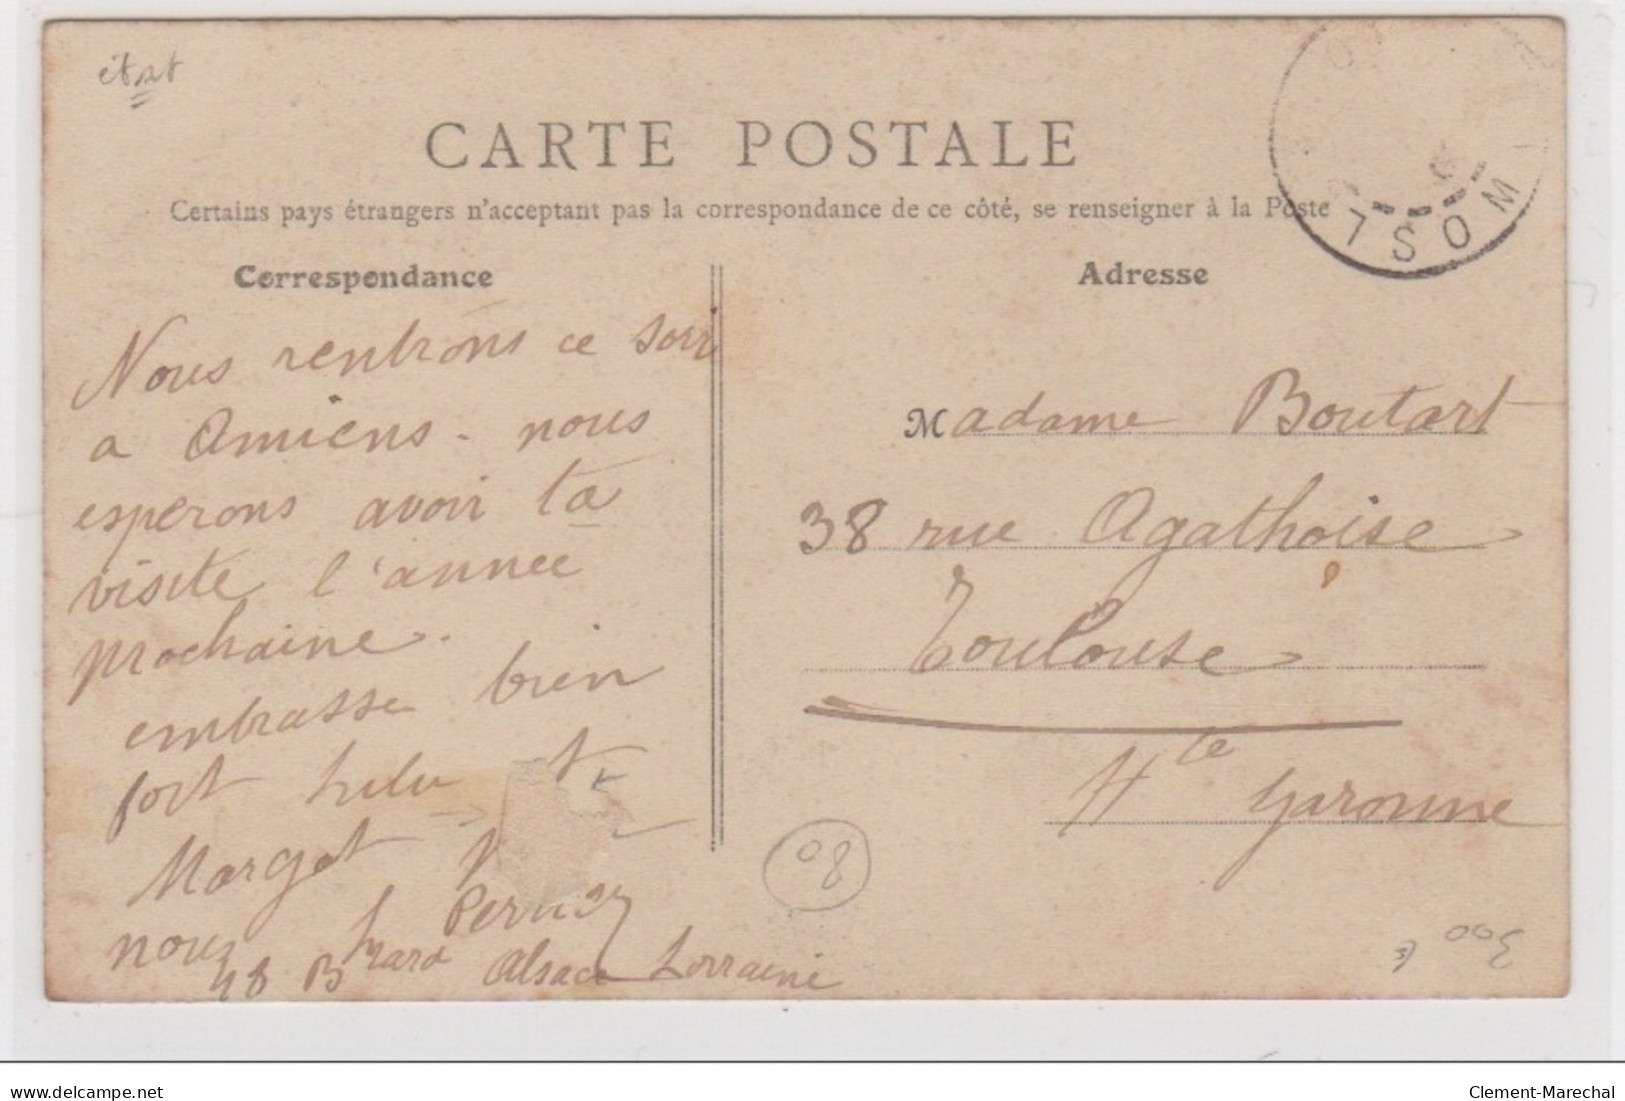 état
CARTE POSTALE
Certains pays étrangers n'acceptant pas la correspondance de ce côté, se renseigner à la Poste
Correspondance
Nous rentrons ce soir
a Amiens. nous
esperons avoir ta
visite l'année
prochaine.
embrasse bien
fort lulu
Margot
nous
48 Bvard Alsace Lorraine
Adresse
Madame Boutart
38 rue Agathoise
Toulouse
Hte Garonne
MOSL
08
300
delcampe.net
Clement-Marechal